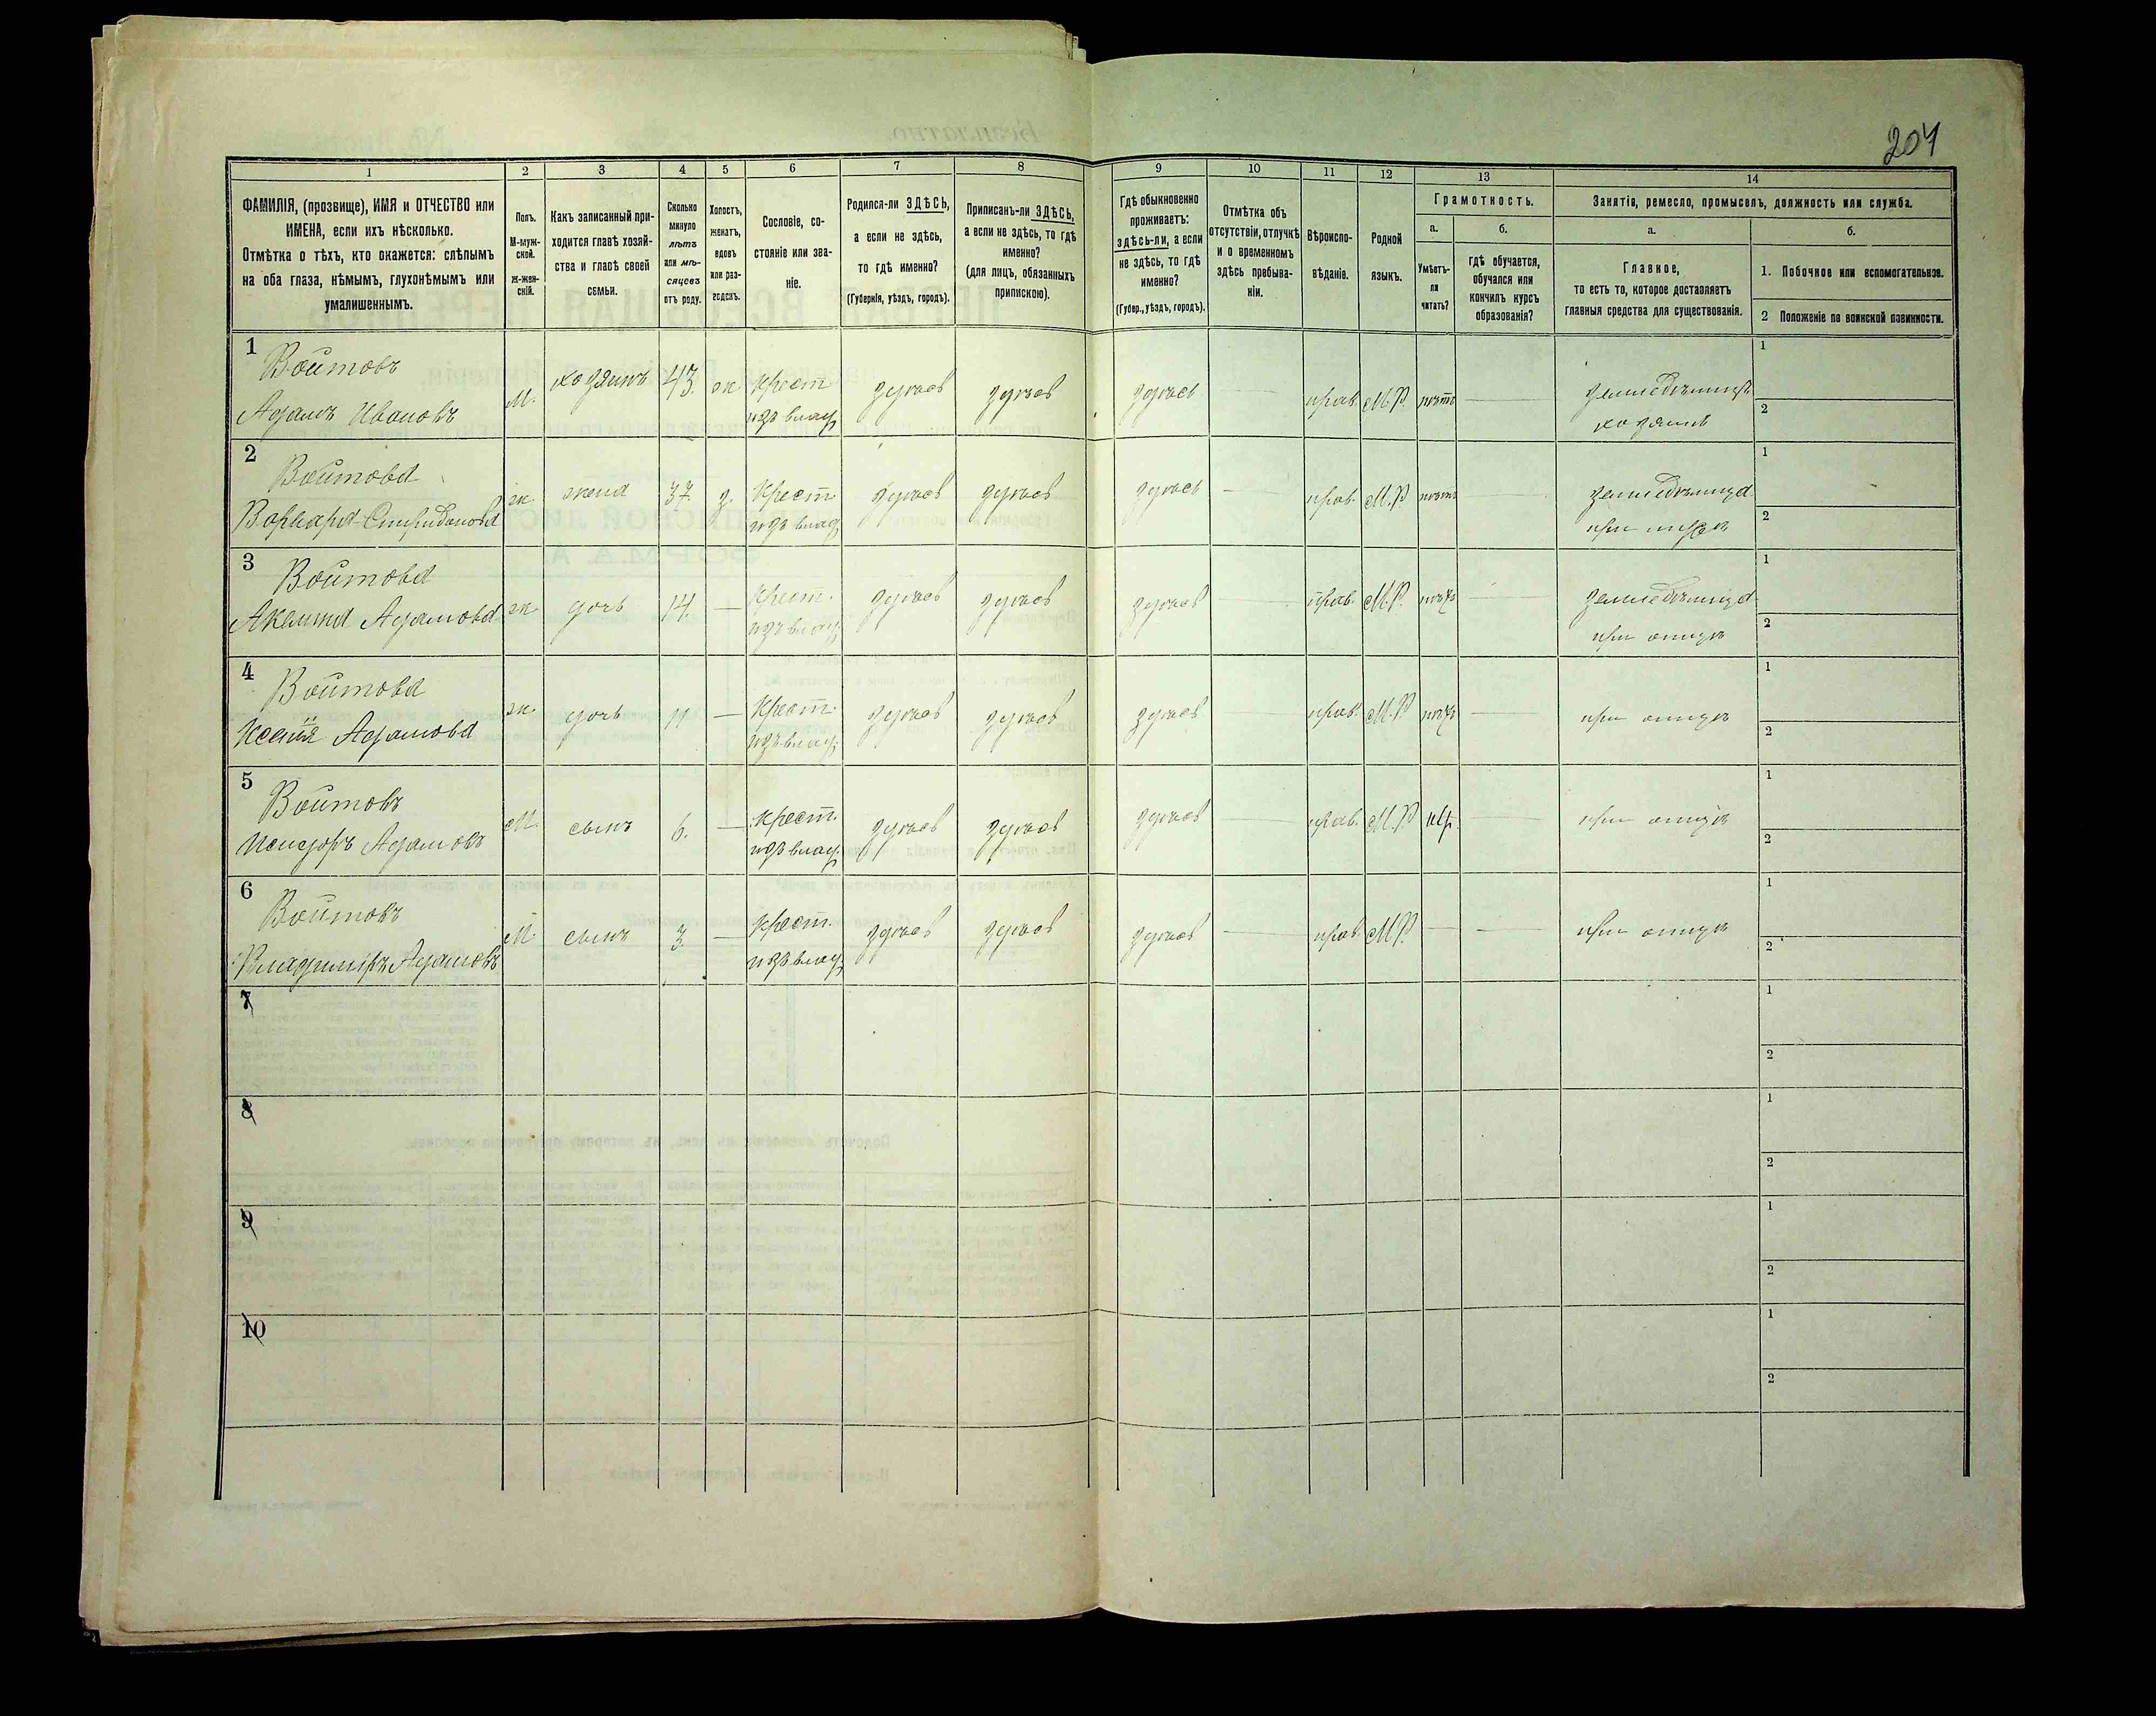 207
1 2 3 4 5 6 7 8 9 10 11 12 13 14
ФАМИЛІЯ, (прозвище), ИМЯ и ОТЧЕСТВО или
ИМЕНА, если ихъ нѣсколько.
Отмѣтка о тѣхъ, кто окажется: слѣпымъ
на оба глаза, нѣмымъ, глухонѣмымъ или
умалишеннымъ.
Полъ.
М-муж-
ской.
Ж-жен-
скій.
Какъ записанный при-
ходится главѣ хозяй-
ства и главѣ своей
семьи.
Сколько
минуло
лѣтъ
или мѣ-
сяцевъ
отъ роду.
Холостъ,
женатъ,
вдовъ
или раз-
веденъ.
Сословіе, со-
стояніе или зва-
ніе.
Родился-ли ЗДѢСЬ,
а если не здѣсь,
то гдѣ именно?
(Губернія, уѣздъ, городъ).
Приписанъ-ли ЗДѢСЬ,
а если не здѣсь, то гдѣ
именно?
(для лицъ, обязанныхъ
припискою).
Гдѣ обыкновенно
проживаетъ:
здѣсь-ли, а если
не здѣсь, то гдѣ
именно?
(Губер., уѣздъ, городъ).
Отмѣтка объ
отсутствіи, отлучкѣ
и о временномъ
здѣсь пребыва-
ніи.
Вѣроиспо-
вѣданіе.
Родной
языкъ.
Грамотность.
а.
Умѣетъ-
ли
читать?
б.
гдѣ обучается,
обучался или
кончилъ курсъ
образованія?
Занятія, ремесло, промыселъ, должность или служба.
а.
Главное,
то есть то, которое доставляетъ
главныя средства для существованія.
б.
1. Побочное или вспомогательное.
2 Положеніе по воинской повинности.
1
Войтовъ
Адамъ Ивановъ
М. хозяинъ 43. ж крест
изъ влад. здѣсь здѣсь здѣсь — прав. М.Р. нѣтъ —
земледѣлецъ
хозяинъ
1
2
2
Войтова
Варвара Спиридонова
ж. жена 37. з. Крест.
изъ влад. здѣсь здѣсь здѣсь — прав. М.Р. нѣтъ
земледѣлица
при мужѣ
1
2
3
Войтова
Акелина Адамова
ж. дочь 14. — Крест.
изъ влад. здѣсь здѣсь здѣсь — прав. М.Р. —
земледѣлица
при отцѣ
1
2
4
Войтова
Ксенія Адамова
ж. дочь 11 — Крест.
изъ влад. здѣсь здѣсь здѣсь — прав. М.Р. —
при отцѣ
1
2
5
Войтовъ
Исидоръ Адамовъ
М. сынъ 6. — Крест.
изъ влад. здѣсь здѣсь здѣсь — прав. М.Р. —
при отцѣ
1
2
6
Войтовъ
Владиміръ Адамовъ
М. сынъ 3. — Крест.
изъ влад. здѣсь здѣсь здѣсь — прав. М.Р. — —
при отцѣ
1
2
7
1
2
8
1
2
9
1
2
10
1
2